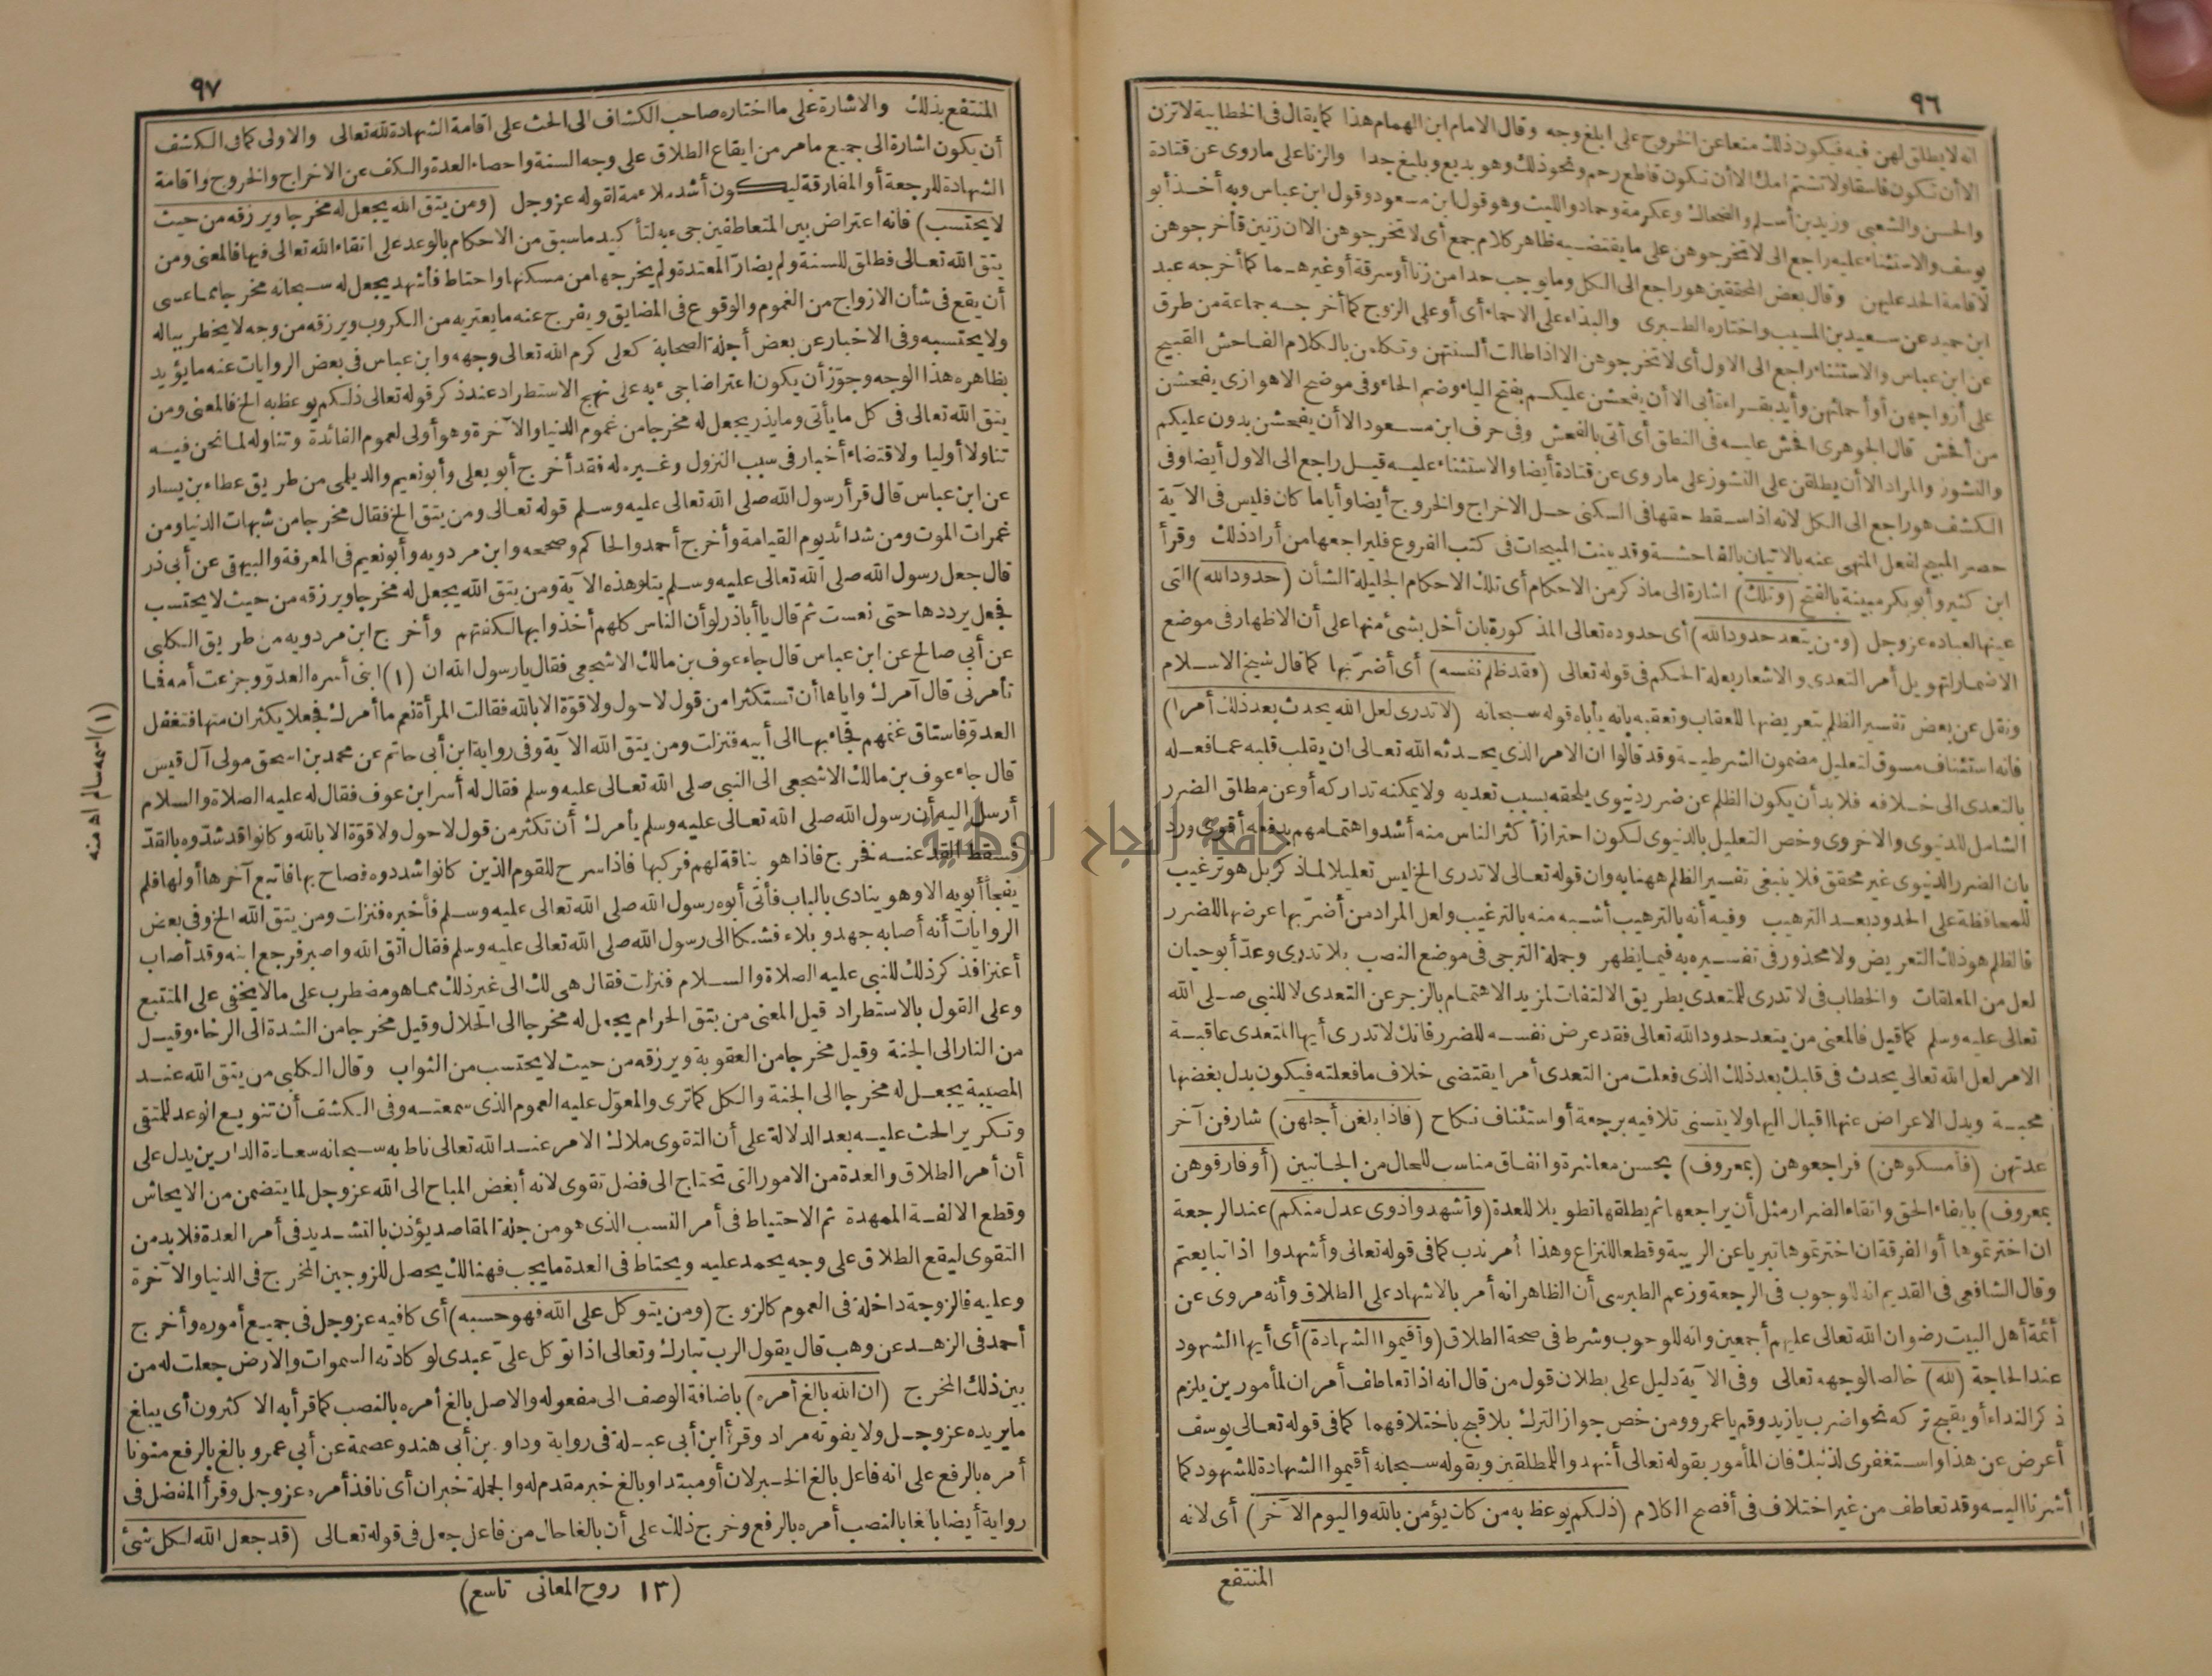 ٩٦
انه لا يطلق لهن فيه فيكون ذلك منعا عن الخروج على ابلغ وجه وقال الامام ابن الهمام هذا كما يقال فى الخطابية لاتزن
الا أن تكون فاسقا ولا تشتم امك الا أن تكون قاطع رحم ونحو ذلك وهو بديع وبليغ جدا والزنا على ماروى عن قتادة
والحسن والشعبى وزيد بن أسلم والضحاك وعكرمة وحماد والليث وهو قول ابن مسعود وقول ابن عباس وبه أخذ أبو
يوسف والاستثناء عليه راجع الى لا تخرجوهن على ما يقتضيه ظاهر كلام جمع أى لا تخرجوهن الا ان زنين فأخرجوهن
لاقامة الحد عليهن وقال بعض المحققين هو راجع الى الكل وما يوجب حدا من زنا أو سرقة أو غيرهما كما أخرجه عبد
ابن حميد عن سعيد بن المسيب واختاره الطبرى والبذاء على الاحماء أى أو على الزوج كما أخرجه جماعة من طرق
عن ابن عباس والاستثناء راجع الى الاول أى لا تخرجوهن الا اذا طالت ألسنتهن وتكلمن بالكلام الفاحش القبيح
على أزواجهن أو أحمائهن وأيد بقراءة أبى الا أن يفحشن عليكم بفتح الياء وضم الحاء وفى موضح الاهوازى يفحشن
من أفحش قال الجوهرى افحش عليه فى النطق أى أتى بالفحش وفى حرف ابن مسعود الا أن يفحشن بدون عليكم
والنشوز والمراد الا أن يطلقن على النشوز على ماروى عن قتادة أيضا والاستثناء عليه قيل راجع الى الاول أيضا وفى
الكشف هو راجع الى الكل لانه اذا سقط حقها فى السكنى حل الاخراج والخروج أيضا وأياما كان فليس فى الآية
حصر المبيح لفعل المنهى عنه بالاتيان بالفاحشة وقد بينت المبيحات فى كتب الفروع فليراجعها من أراد ذلك وقرأ
ابن كثير وأبو بكر مبينة بالفتح (وتلك) اشارة الى ما ذكر من الاحكام أى تلك الاحكام الجليلة الشأن (حدود الله) التى
عينها لعباده عز وجل (ومن يتعد حدود الله) أى حدوده تعالى المذكورة بان أخل بشئ منها على أن الاظهار فى موضع
الاضمار لتهويل أمر التعدى والاشعار بعلة الحكم فى قوله تعالى (فقد ظلم نفسه) أى أضرّ بها كما قال شيخ الاسلام
ونقل عن بعض تفسير الظلم بتعريضها للعقاب وتعقبه بانه يأباه قوله سبحانه (لا تدرى لعل الله يحدث بعد ذلك أمرا)
فانه استئناف مسوق لتعليل مضمون الشرطية وقد قالوا ان الامر الذى يحدثه الله تعالى ان يقلب قلبه عما فعله
بالتعدى الى خلافه فلا بد أن يكون الظلم عن ضرر دنيوى يلحقه بسبب تعديه ولا يمكنه تداركه أو عن مطلق الضرر
الشامل للدنيوى والاخروى وخص التعليل بالدنيوى لكون احتراز أكثر الناس منه أشد واهتمامهم بدفعه أقوى ورد
بان الضرر الدنيوى غير محقق فلا ينبغى تفسير الظلم ههنا به وان قوله تعالى لا تدرى الخ ليس تعليلا لما ذكر بل هو ترغيب
للمحافظة على الحدود بعد الترهيب وفيه أنه بالترهيب أشبه منه بالترغيب ولعل المراد من أضرّ بها عرضها للضرر
فالظلم هو ذلك التعريض ولا محذور فى تفسيره به فيما يظهر وجملة الترجى فى موضع النصب بلا تدرى وعدّ أبو حيان
لعل من المعلقات والخطاب فى لا تدرى للمتعدى بطريق الالتفات لمزيد الاهتمام بالزجر عن التعدى لا للنبى صلى الله
تعالى عليه وسلم كما قيل فالمعنى من يتعد حدود الله تعالى فقد عرض نفسه للضرر فانك لا تدرى أيها المتعدى عاقبة
الامر لعل الله تعالى يحدث فى قلبك بعد ذلك الذى فعلت من التعدى أمرا يقتضى خلاف ما فعلته فيكون بدل بغضها
محبة وبدل الاعراض عنها اقبال اليها ولا يتسنى تلافيه برجعة أو استئناف نكاح (فاذا بلغن أجلهن) شارفن آخر
عدتهن (فأمسكوهن) فراجعوهن (بمعروف) بحسن معاشرة وانفاق مناسب للحال من الجانبين (أو فارقوهن
بمعروف) بايفاء الحق واتقاء الضرار مثل أن يراجعها ثم يطلقها تطويلا للعدة (وأشهدوا ذوى عدل منكم) عند الرجعة
ان اخترتموها أو الفرقة ان اخترتموها تبريا عن الريبة وقطعا للنزاع وهذا أمر ندب كما فى قوله تعالى وأشهدوا اذا تبايعتم
وقال الشافعى فى القديم انه للوجوب فى الرجعة وزعم الطبرسى أن الظاهر انه أمر بالاشهاد على الطلاق وأنه مروى عن
أئمة أهل البيت رضوان الله تعالى عليهم أجمعين وانه للوجوب وشرط فى صحة الطلاق (وأقيموا الشهادة) أى أيها الشهود
عند الحاجة (لله) خالصا لوجهه تعالى وفى الآية دليل على بطلان قول من قال انه اذا تعاطف أمران لمأمورين يلزم
ذكر النداء أو يقبح تركه نحو اضرب يا زيد وقم يا عمرو ومن خص جواز الترك بلا قبح باختلافهما كما فى قوله تعالى يوسف
أعرض عن هذا واستغفرى لذنبك فان المأمور بقوله تعالى أشهدوا للمطلقين وبقوله سبحانه أقيموا الشهادة للشهود كما
أشرنا اليه وقد تعاطف من غير اختلاف فى أفصح الكلام (ذلكم يوعظ به من كان يؤمن بالله واليوم الآخر) أى لانه
المنتفع
٩٧
المنتفع بذلك والاشارة على ما اختاره صاحب الكشاف الى الحث على اقامة الشهادة لله تعالى والاولى كما فى الكشف
أن يكون اشارة الى جميع ما مر من ايقاع الطلاق على وجه السنة واحصاء العدة والكف عن الاخراج والخروج واقامة
الشهادة للرجعة أو المفارقة ليكون أشد ملاءمة لقوله عز وجل (ومن يتق الله يجعل له مخرجا ويرزقه من حيث
لا يحتسب) فانه اعتراض بين المتعاطفين جىء به لتأكيد ما سبق من الاحكام بالوعد على اتقاء الله تعالى فيها فالمعنى ومن
يتق الله تعالى فطلق للسنة ولم يضارّ المعتدة ولم يخرجها من مسكنها واحتاط فأشهد يجعل له سبحانه مخرجا مما عسى
أن يقع فى شأن الازواج من الغموم والوقوع فى المضايق ويفرج عنه ما يعتريه من الكروب ويرزقه من وجه لا يخطر بباله
ولا يحتسبه وفى الاخبار عن بعض أجلة الصحابة كعلى كرم الله تعالى وجهه وابن عباس فى بعض الروايات عنه ما يؤيد
بظاهره هذا الوجه وجوّز أن يكون اعتراضا جىء به على نهج الاستطراد عند ذكر قوله تعالى ذلكم يوعظ به الخ فالمعنى ومن
يتق الله تعالى فى كل ما يأتى وما يذر يجعل له مخرجا من غموم الدنيا والآخرة وهو أولى لعموم الفائدة وتناوله لما نحن فيه
تناولا أوليا ولاقتضاء أخبار فى سبب النزول وغيره له فقد أخرج أبو يعلى وأبو نعيم والديلمى من طريق عطاء بن يسار
عن ابن عباس قال قرأ رسول الله صلى الله تعالى عليه وسلم قوله تعالى ومن يتق الخ فقال مخرجا من شبهات الدنيا ومن
غمرات الموت ومن شدائد يوم القيامة وأخرج أحمد والحاكم وصححه وابن مردويه وأبو نعيم فى المعرفة والبيهقى عن أبى ذر
قال جعل رسول الله صلى الله تعالى عليه وسلم يتلو هذه الآية ومن يتق الله يجعل له مخرجا ويرزقه من حيث لا يحتسب
فجعل يرددها حتى نعست ثم قال يا أبا ذر لو أن الناس كلهم أخذوا بها لكفتهم وأخرج ابن مردويه من طريق الكلبى
عن أبى صالح عن ابن عباس قال جاء عوف بن مالك الاشجعى فقال يا رسول الله ان (١) ابنى أسره العدوّ وجزعت أمه فما
تأمرنى قال آمرك واياها أن تستكثرا من قول لا حول ولا قوّة الا بالله فقالت المرأة نعم ما أمرك فجعلا يكثران منها فتغفل
العدوّ فاستاق غنمهم فجاء بها الى أبيه فنزلت ومن يتق الله الآية وفى رواية ابن أبى حاتم عن محمد بن اسحق مولى آل قيس
قال جاء عوف بن مالك الاشجعى الى النبى صلى الله تعالى عليه وسلم فقال له أسر ابن عوف فقال له عليه الصلاة والسلام
أرسل اليه أن رسول الله صلى الله تعالى عليه وسلم يأمرك أن تكثر من قول لا حول ولا قوّة الا بالله وكانوا قد شدّوه بالقدّ
فسقط القدّ عنه فخرج فاذا هو بناقة لهم فركبها فاذا سرح للقوم الذين كانوا شددوه فصاح بها فاتبع آخرها أولها فلم
يفجأ أبويه الا وهو ينادى بالباب فأتى أبوه رسول الله صلى الله تعالى عليه وسلم فأخبره فنزلت ومن يتق الله الخ وفى بعض
الروايات أنه أصابه جهد وبلاء فشكا الى رسول الله صلى الله تعالى عليه وسلم فقال اتق الله واصبر فرجع ابنه وقد أصاب
أعنزا فذكر ذلك للنبى عليه الصلاة والسلام فنزلت فقال هى لك الى غير ذلك مما هو مضطرب على ما لا يخفى على المتتبع
وعلى القول بالاستطراد قيل المعنى من يتق الحرام يجعل له مخرجا الى الحلال وقيل مخرجا من الشدة الى الرخاء وقيل
من النار الى الجنة وقيل مخرجا من العقوبة ويرزقه من حيث لا يحتسب من الثواب وقال الكلبى من يتق الله عند
المصيبة يجعل له مخرجا الى الجنة والكل كما ترى والمعوّل عليه العموم الذى سمعته وفى الكشف أن تنويع الوعد للمتقى
وتكرير الحث عليه بعد الدلالة على أن التقوى ملاك الامر عند الله تعالى ناط به سبحانه سعادة الدارين يدل على
أن أمر الطلاق والعدة من الامور التى تحتاج الى فضل تقوى لانه أبغض المباح الى الله عز وجل لما يتضمن من الايحاش
وقطع الالفة الممهدة ثم الاحتياط فى أمر النسب الذى هو من جلة المقاصد يؤذن بالتشديد فى أمر العدة فلا بد من
التقوى ليقع الطلاق على وجه يحمد عليه ويحتاط فى العدة ما يجب فهنالك يحصل للزوجين المخرج فى الدنيا والآخرة
وعليه فالزوجة داخلة فى العموم كالزوج (ومن يتوكل على الله فهو حسبه) أى كافيه عز وجل فى جميع أموره وأخرج
أحمد فى الزهد عن وهب قال يقول الرب تبارك وتعالى اذا توكل علىّ عبدى لو كادته السموات والارض جعلت له من
بين ذلك المخرج (ان الله بالغ أمره) باضافة الوصف الى مفعوله والاصل بالغ أمره بالنصب كما قرأ به الاكثرون أى يبلغ
ما يريده عز وجل ولا يفوته مراد وقرأ ابن أبى عبلة فى رواية وداود بن أبى هند وعصمة عن أبى عمرو بالغ بالرفع منونا
أمره بالرفع على انه فاعل بالغ الخبر لان أو مبتدا وبالغ خبر مقدم له والجملة خبر ان أى نافذ أمره عز وجل وقرأ المفضل فى
رواية أيضا بالغا بالنصب أمره بالرفع وخرج ذلك على أن بالغا حال من فاعل جعل فى قوله تعالى (قد جعل الله لكل شئ
(١) اسمه سالم اه منه
(١٣ روح المعانى تاسع)
جامعة النجاح الوطنية